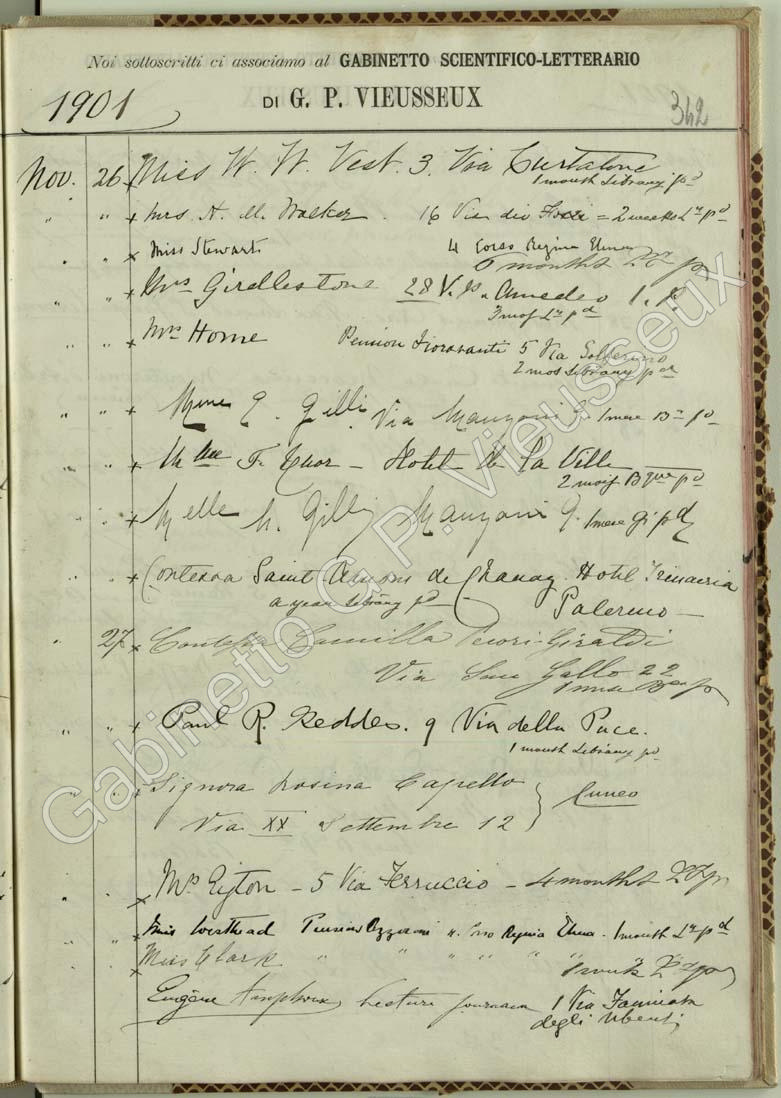 Noi sottoscritti ci associamo al GABINETTO SCIENTIFICO-LETTERARIO
1901 DI G. P. VIEUSSEUX 342
Nov. 26 x Miss W. W. Vest. 3. Via Curtatone
1 month Library pd
" " x Mrs A. M. Walker. 16 Via dei = 2 weeks Ly pd
" " x Miss Stewart 4 Corso Regina Elena
6 months
" " x Mrs Girdlestone 28 V. Pa Amedeo 1. p.
3 mos Ly pd
" " x Mrs Horne Pension Fioravanti 5 Via Solferino
2 mos Library pd
" " x Mme E. Gilli Via Manzoni 1 mese pd
" " x F. Hotel de la Ville
2 mois Bque pd
" " x Melle M. Gilli Manzoni 9. 1 mese pd
" " x Contessa Saint Amons de Chanaz. Hotel Trinacria
a year Library pd Palermo
" 27 x Contessa Camilla Pecori-Giraldi
Via San Gallo 22
" " x Paul R. Geddes. 9 Via della Pace.
1 month Library pd
" " x Signora Rosina Capello
Via XX Settembre 12 } Cuneo
x Mrs Eyton - 5 Via Ferruccio - 4 months
" x Miss Westhead Pension 4. Corso Regina Elena. 1 month Ly pd
" x Miss Clark " " " " " " 1 month
Eugène Lecture journaux 1 Via Farinata
degli Uberti
Gabinetto G.P. Vieusseux